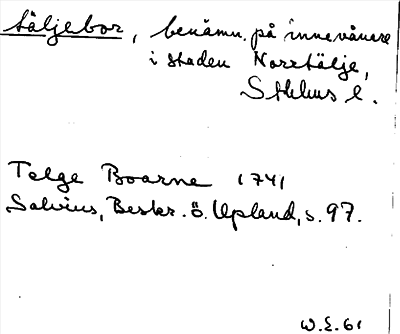 täljebor, benämn. på innevånare
i staden Norrtälje,
Sthlms l.
Telge Boarne 1741
Salvius, Beskr. ö. Upland, s. 97.
W.E. 61